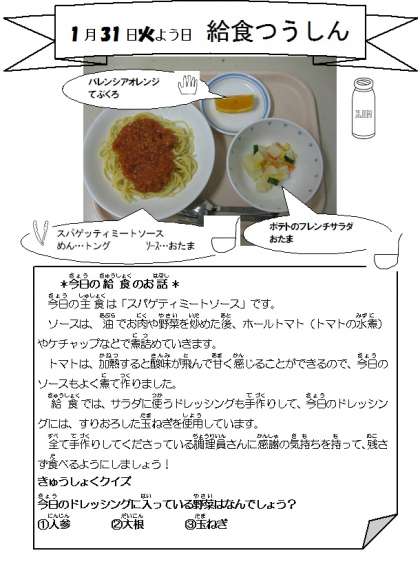 1月31日火よう日 給食つうしん
バレンシアオレンジ
てぶくろ
スパゲッティミートソース
めん…トング ソース…おたま
ポテトのフレンチサラダ
おたま
*今日の給食のお話*
今日の主食は「スパゲティミートソース」です。
ソースは、油でお肉や野菜を炒めた後、ホールトマト(トマトの水煮)
やケチャップなどで煮詰めていきます。
トマトは、加熱すると酸味が飛んで甘く感じることができるので、今日の
ソースもよく煮て作りました。
給食では、サラダに使うドレッシングも手作りして、今日のドレッシン
グには、すりおろした玉ねぎを使用しています。
全て手作りしてくださっている調理員さんに感謝の気持ちを持って、残さ
ず食べるようにしましょう!
きゅうしょくクイズ
今日のドレッシングに入っている野菜はなんでしょう?
①人参 ②大根 ③玉ねぎ